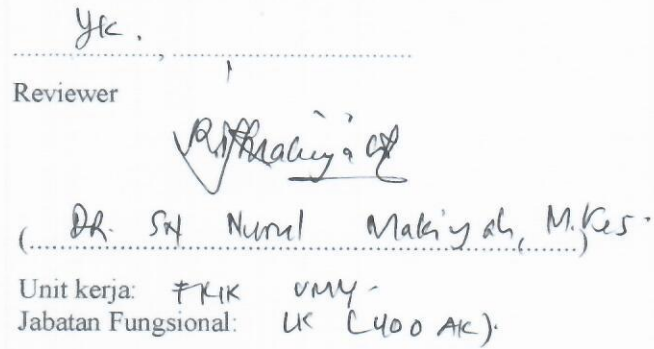 Yk.
Reviewer
(DR. Sri Nurul Makiyah, M.Kes.)
Unit kerja: FKIK UMY
Jabatan Fungsional: LK (400 AK).